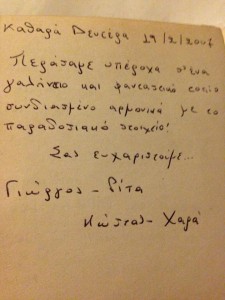 Καθαρά Δευτέρα
Περάσαμε υπέροχα σ'ένα
γαλήνιο και φανταστικό τοπίο
συνδιασμένο αρμονικά με το
παραδοσιακό στοιχείο!
Σας ευχαριστούμε...
Γιώργος - Ρίτα
Κώστας - Χαρά